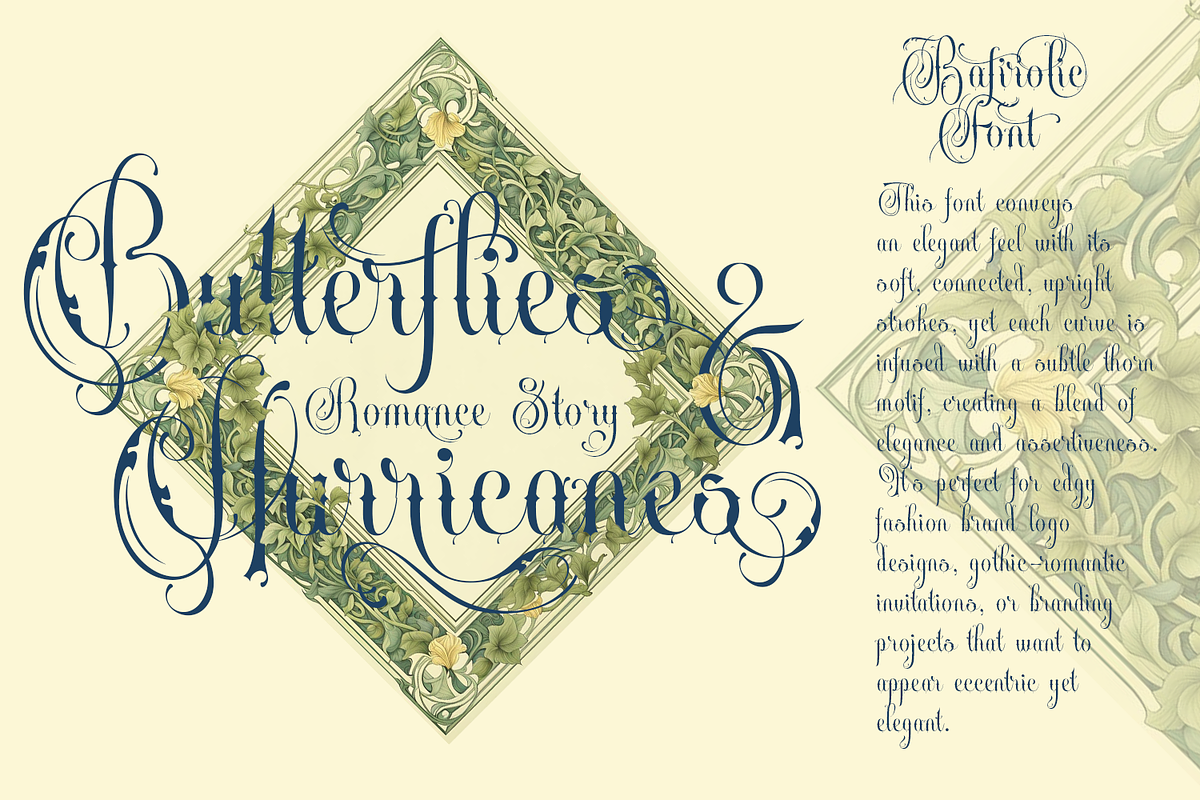 Butterflies &
Romance Story
Hurricanes
Bafirolic
Font
This font conveys
an elegant feel with its
soft, connected, upright
strokes, yet each curve is
infused with a subtle thorn
motif, creating a blend of
elegance and assertiveness.
It's perfect for edgy
fashion brand logo
designs, gothic-romantic
invitations, or branding
projects that want to
appear eccentric yet
elegant.